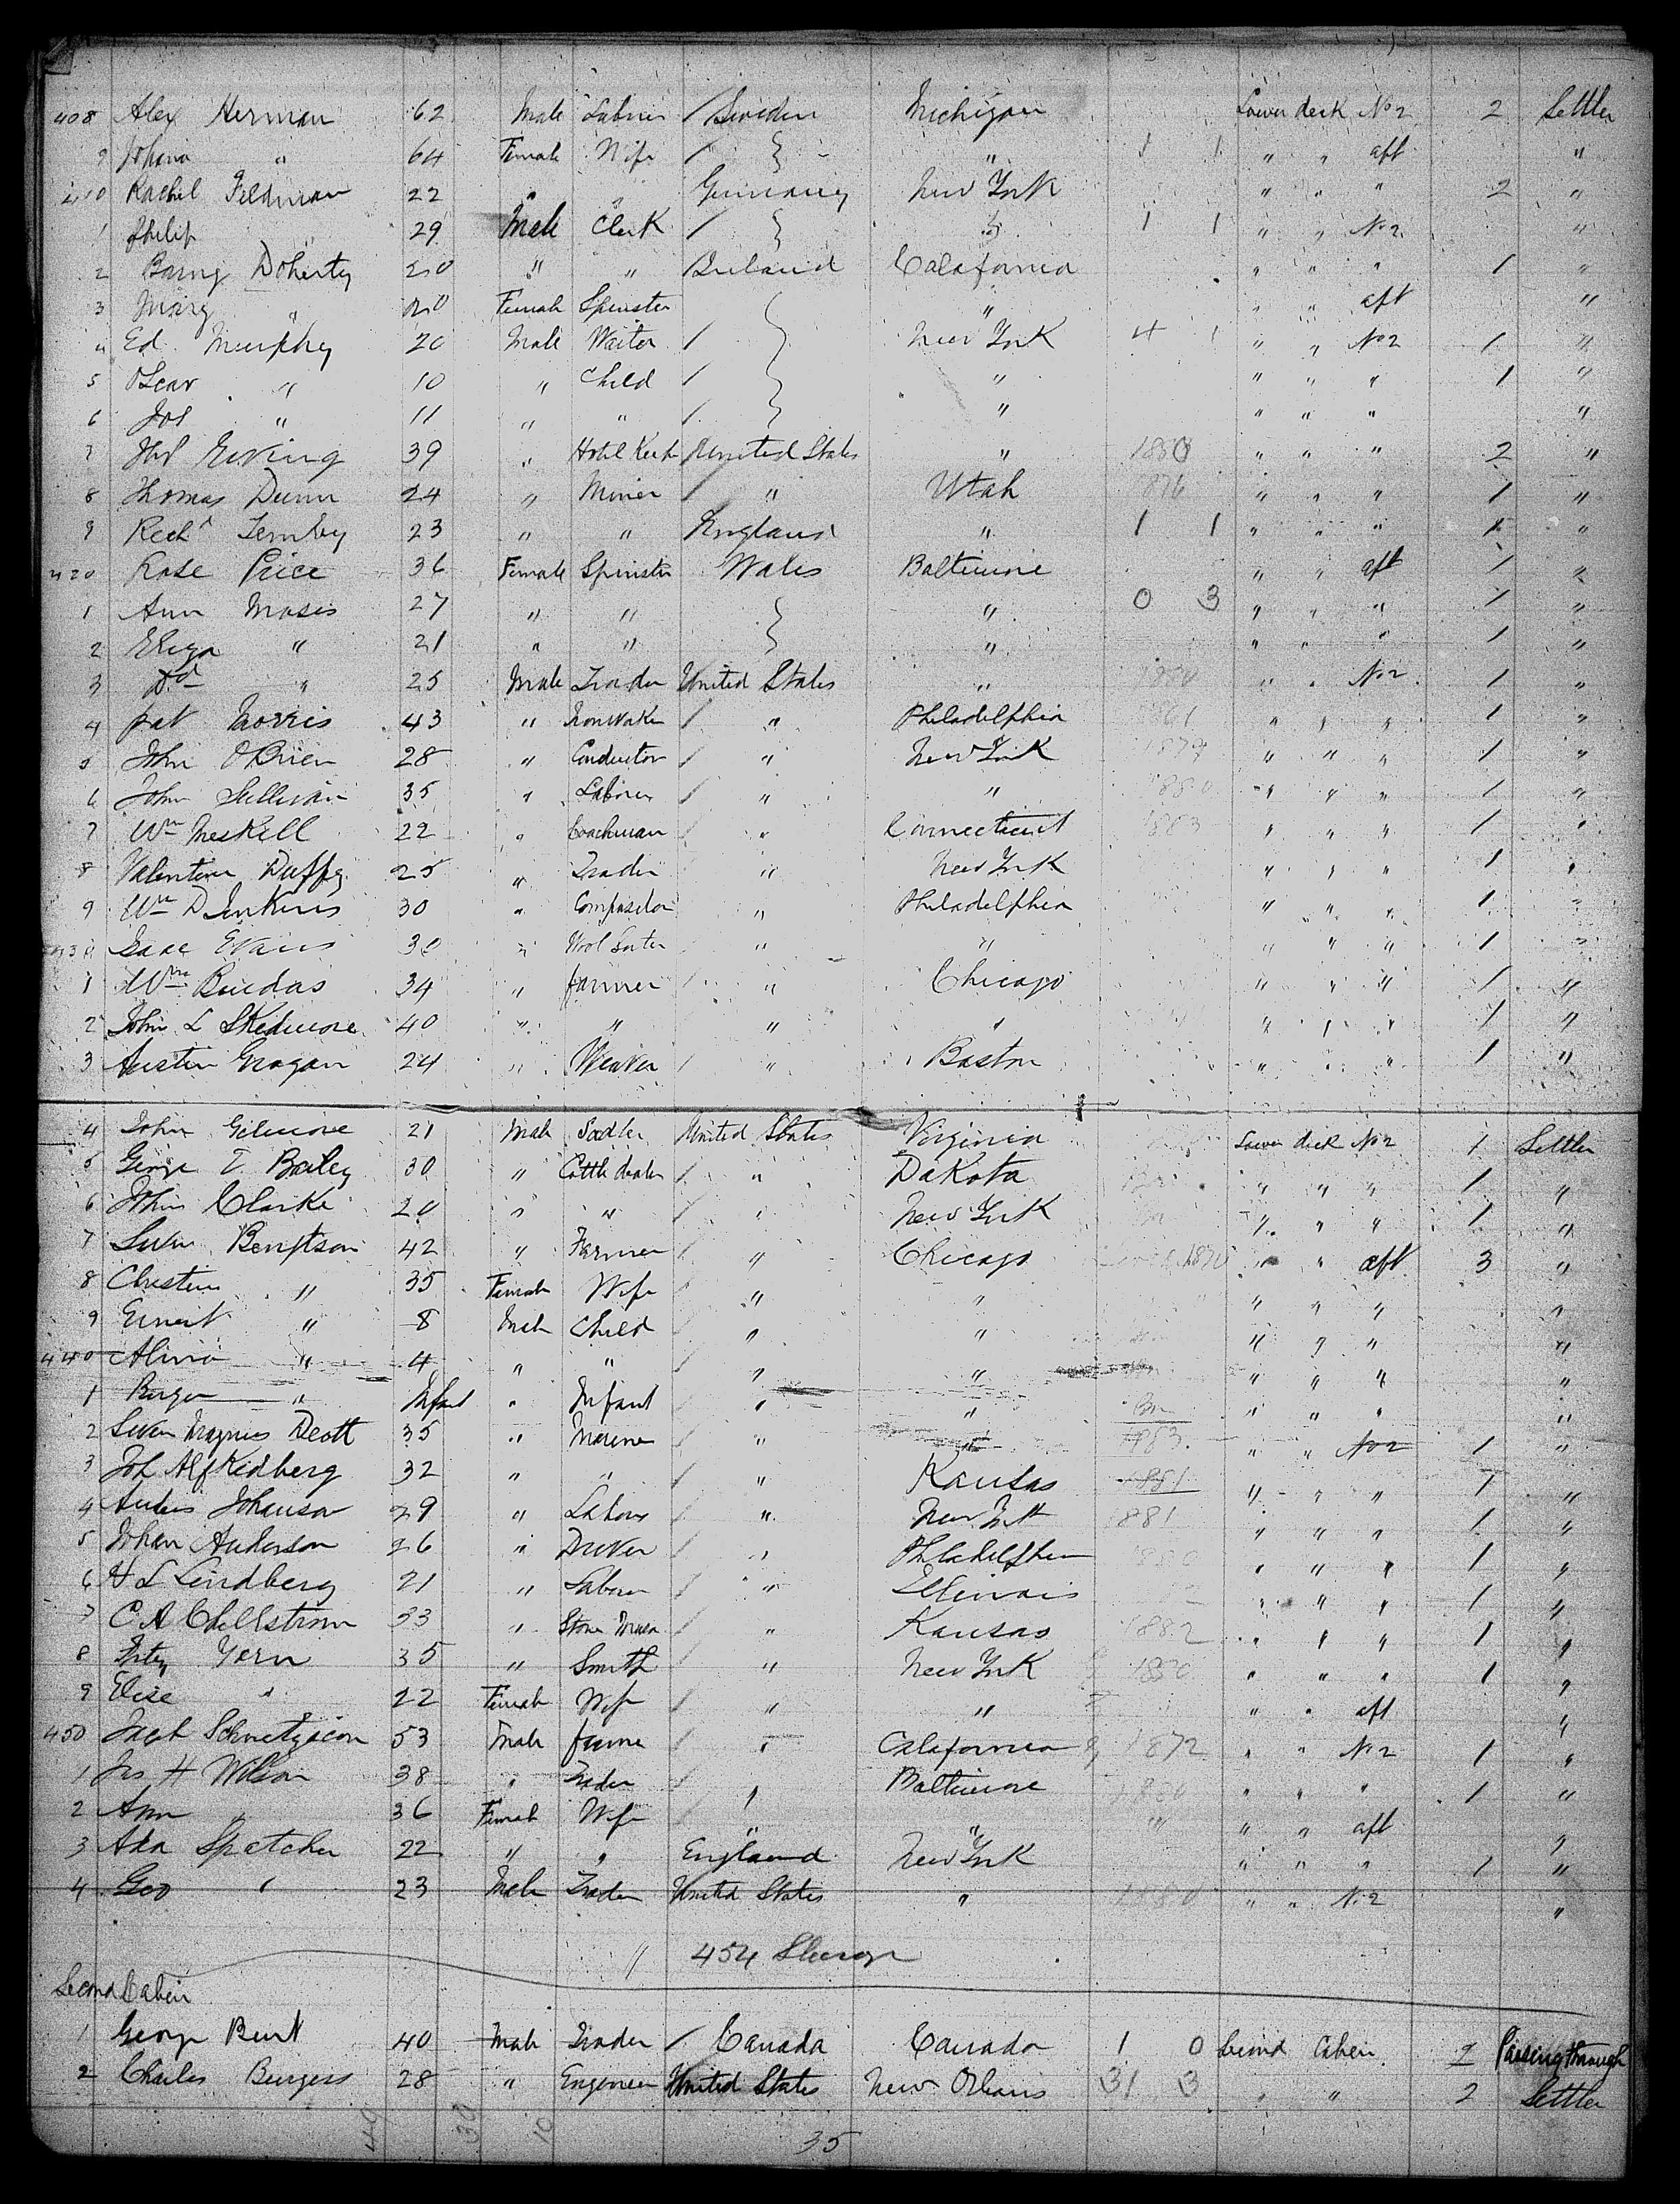 408 Alex Herman 62 Male Laborer / Sweden Michigan Lower deck No 2 2 Settler
9 " 64 Female Wife / " 1 1 " " aft "
410 Rachel Feldman 22 " " Germany New York " " " 2 "
1 Philip " 29 Male Clerk / " 1 1 " " No 2 "
2 Doherty 20 " " Ireland California " " " 1 "
3 Mary " 20 Female Spinster " " " aft "
4 Ed Murphy 20 Male Waiter / New York 4 1 " " No 2 1 "
5 Oscar " 10 " Child / " " " " 1 "
6 Jos " 11 " " / " " " " "
7 39 " United States " 1880 " " " 2 "
8 Thomas Dunn 24 " Miner / " Utah 1876 " " " 1 "
9 Rich^d 23 " " England " 1 1 " " " 1 "
420 Rose Price 36 Female Spinster Wales Baltimore " " aft 1 "
1 Ann Moses 27 " " " 0 3 " " " 1 "
2 Eliza " 21 " " " " " " 1 "
3 D^d " 25 Male Trader United States " 1880 " " No 2 1 "
4 Pat Morris 43 " Iron Worker / " Philadelphia " " " 1 "
5 John O'Brien 28 " Conductor / " New York 1879 " " " 1 "
6 John Sullivan 35 " Laborer / " " 1880 " " " 1 "
7 Wm Meskell 22 " Coachman / " Connecticut 1883 " " " 1 "
8 Valentine Duffy 25 " Trader " New York " " " 1 "
9 Wm D Jenkins 30 " Compositor " Philadelphia " " " 1 "
430 Isaac Evans 30 " Wool Sorter " " " " " 1 "
1 Wm 34 " farmer / " Chicago " " " 1 "
2 John L Skidmore 40 " " " " " " " 1 "
3 Austin Grogan 24 " Weaver / " Boston " " " 1 "
4 John Gilmore 21 Male Sadler United States Virginia Lower deck No 2 1 Settler
5 George T Bailey 30 " Cattle dealer / " Dakota " " " 1 "
6 John Clarke 20 " " / " New York " " " 1 "
7 Swen Bengtson 42 " Farmer / " Chicago 1870 " " aft 3 "
8 Christine " 35 Female Wife / " " " " " "
9 Ernest " 8 Male Child / " " " " " "
440 " 4 " " / " " " " " "
1 " Infant " Infant " " " " " "
2 Swen Magnus 35 " " " 1883 " " No 2 1 "
3 32 " " / " Kansas 1881 " " " 1 "
4 Johanson 29 " Labore / " New York 1881 " " " 1 "
5 Johan Anderson 26 " Driver / " Philadelphia " " " 1 "
6 Lindberg 21 " Laborer / " Illinois " " " 1 "
7 C A Chellstrom 33 " Stone Mason / " Kansas 1882 " " " 1 "
8 35 " Smith / " New York " " " 1 "
9 Elise " 22 Female Wife / " " " " aft "
450 Jacob 53 Male farmer / " California 1872 " " No 2 1 "
1 Jas H Wilson 38 " Trader / " Baltimore " " " 1 "
2 Ann " 36 Female Wife / " " " " " aft "
3 Ada Spatcher 22 " " England New York " " " 1 "
4 Geo " 23 Male Trader United States " 1880 " " No 2 "
" 454 Steerage
Second Cabin
1 George Burt 40 Male Trader / Canada Canada 1 0 Second Cabin 2 Passing through
2 Charles Burgess 28 " Engineer United States New Orleans 31 3 " " 2 Settler
40 30 10 35